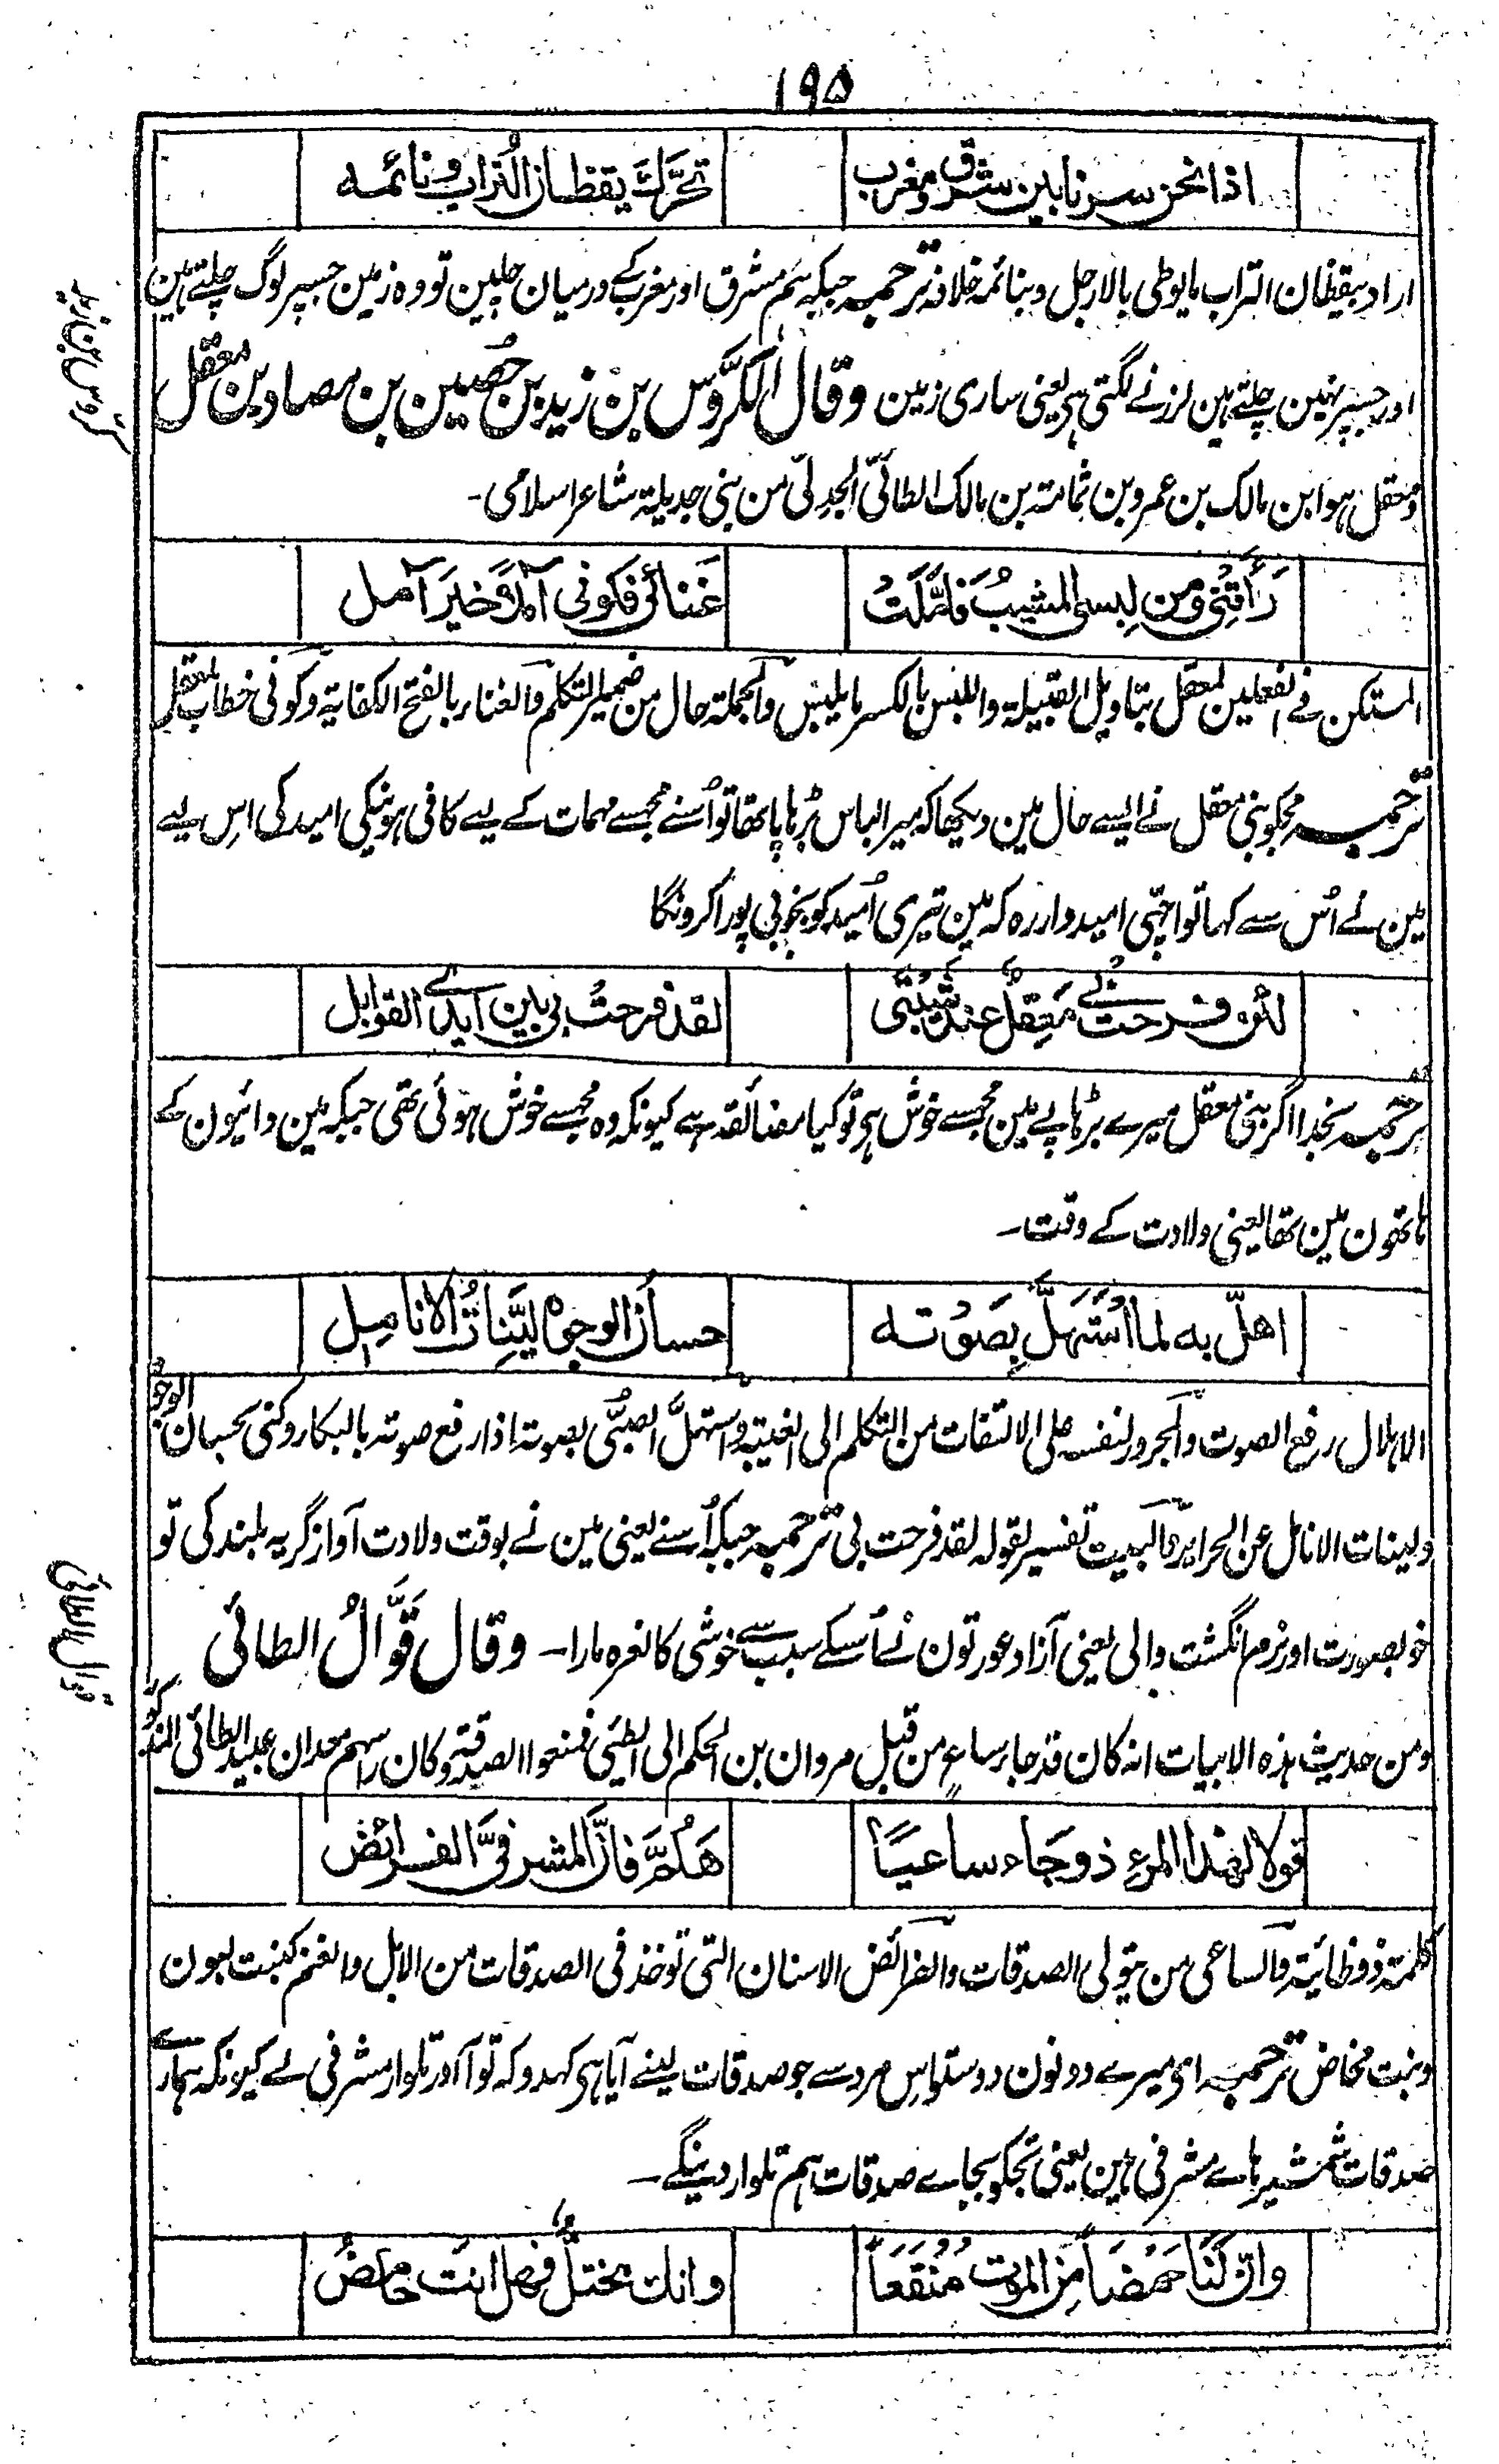 ۱۹۵
اذا نحن سرنا بين شرق ومغرب تحرّك يقظان التراب ونائمه
اراد بیقظان التراب ما یوطی بالارجل وبنائمه خلافه ترجمہ جبکہ ہم مشرق اور مغرب کے درمیان چلین تو وہ زمین جسپر لوگ چلتے ہین
اور جسپر نہین چلتے ہین لرزنے لگتی ہی یعنی ساری زمین وقال الکَرَوَّس بن زید بن حُصین بن مصاد بن معقل
ومعقل ہو ابن مالک بن عمرو بن ثمامتہ بن مالک الطائیّ الجدلیّ من بنی جدیلتہ شاعر اسلامی۔
رَأَتْنِي ومن لِبسي المشيبُ فامّلَتْ غَنائي فكوني آملاً خيرَ آمل
المستکن فی الفعلین لمعقل بتاویل القبیلۃ واللبس بالکسر ما یلبس والجملتہ حال من ضمیر المتکلم والغناء بالفتح الکفایتہ وکونی خطاب لمعقل
ترجمہ مجکو بنی معقل نے ایسے حال مین دیکھا کہ میرا لباس بڑہاپا تھا تو اُسنے مجسے مہمات کے لیے کافی ہونیکی امید کی اِس لیے
مین نے اُس سے کہا تو اچھی امیدوار رہ کہ مین تیری اُمید کو بخوبی پورا کرونگا
لئن فرحت بي مَعقِلٌ عند شَيْبَتي لقد فرحتْ بي بين ايدي القوابل
ترجمہ بخدا اگر بنی معقل میرے بڑہاپے مین مجسے خوش ہی تو کیا مضائقہ ہے کیونکہ وہ مجسے خوش ہوئی تھی جبکہ مین دائیون کے
ہاتھون مین تھا یعنی ولادت کے وقت۔
اهلّ به لما استَهَلَّ بِصَوْته حسانُ الوجوه ليّناتُ الانامِل
الاہلال رفع الصوت والمجرور لنفسہ علی الالتفات من التکلم الی الغیبتہ واستہلّ الصبّی بصوتہ اذا رفع صوتہ بالبکاء وکنی بحسان الوجوہ
ولینات الانامل عن الحرائر والبیت تفسیر لقولہ لقد فرحت بی ترجمہ جبکہ اُسنے یعنی مین نے بوقت ولادت آواز گریہ بلند کی تو
خوبصورت اور نرم انگشت والی یعنی آزاد عورتون نے اُسکے سبب سے خوشی کا نعرہ مارا۔ وقال قَوَّالُ الطائی
ومن حدیث ہذہ الابیات انہ کان قد جاء ساعٍ من قبل مروان بن الحکم الی الطیّی فمنعوا الصدقۃ وکان راسہم معدان عبید الطائی المذکور
قولا لهذا المرءِ ذو جَاء ساعيًا هَلُمَّ فانّ المشرفيَّ الفرائض
کلمتہ ذو طائیتہ والساعی من یتولی الصدقات والفرائض الاسنان التی توخذ فی الصدقات من الابل والغنم کبنت لبون
وبنت مخاض ترجمہ ای میرے دونون دوستو اس مرد سے جو صدقات لینے آیا ہی کہدو کہ تو آ اور تلوار مشرفی لے کیونکہ ہمارے
صدقات شمشیرہاے مشرفی ہین یعنی تجکو بجاے صدقات ہم تلوار دینگے۔
وانّ لَنا حَمْضًا مِن الموت مُنْقَعًا وانك مختلٌّ فهل انت حامضُ
قوّال الطائی